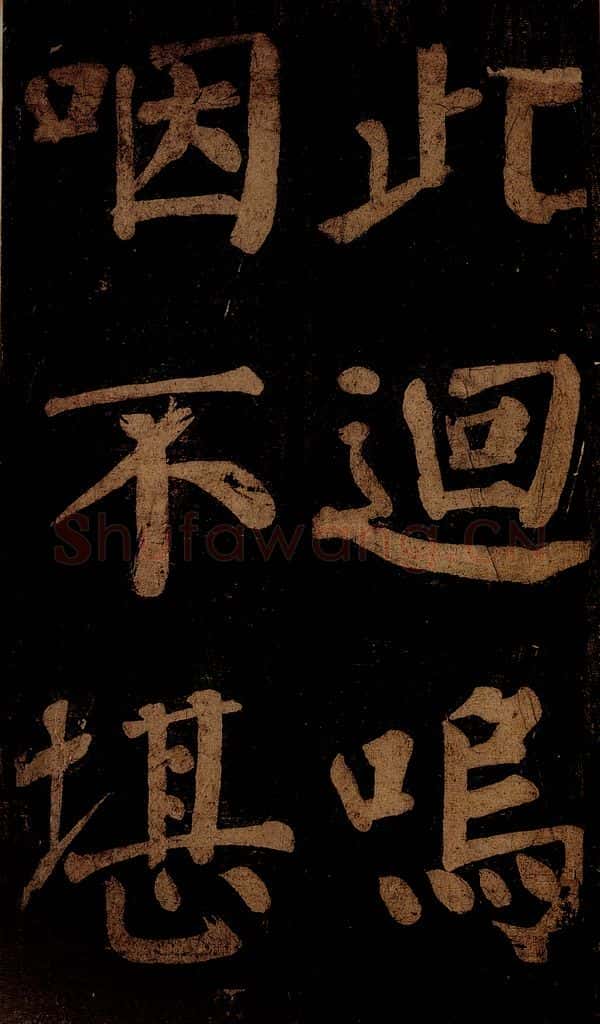 此迴嗚
咽不堪
Shufawang.CN